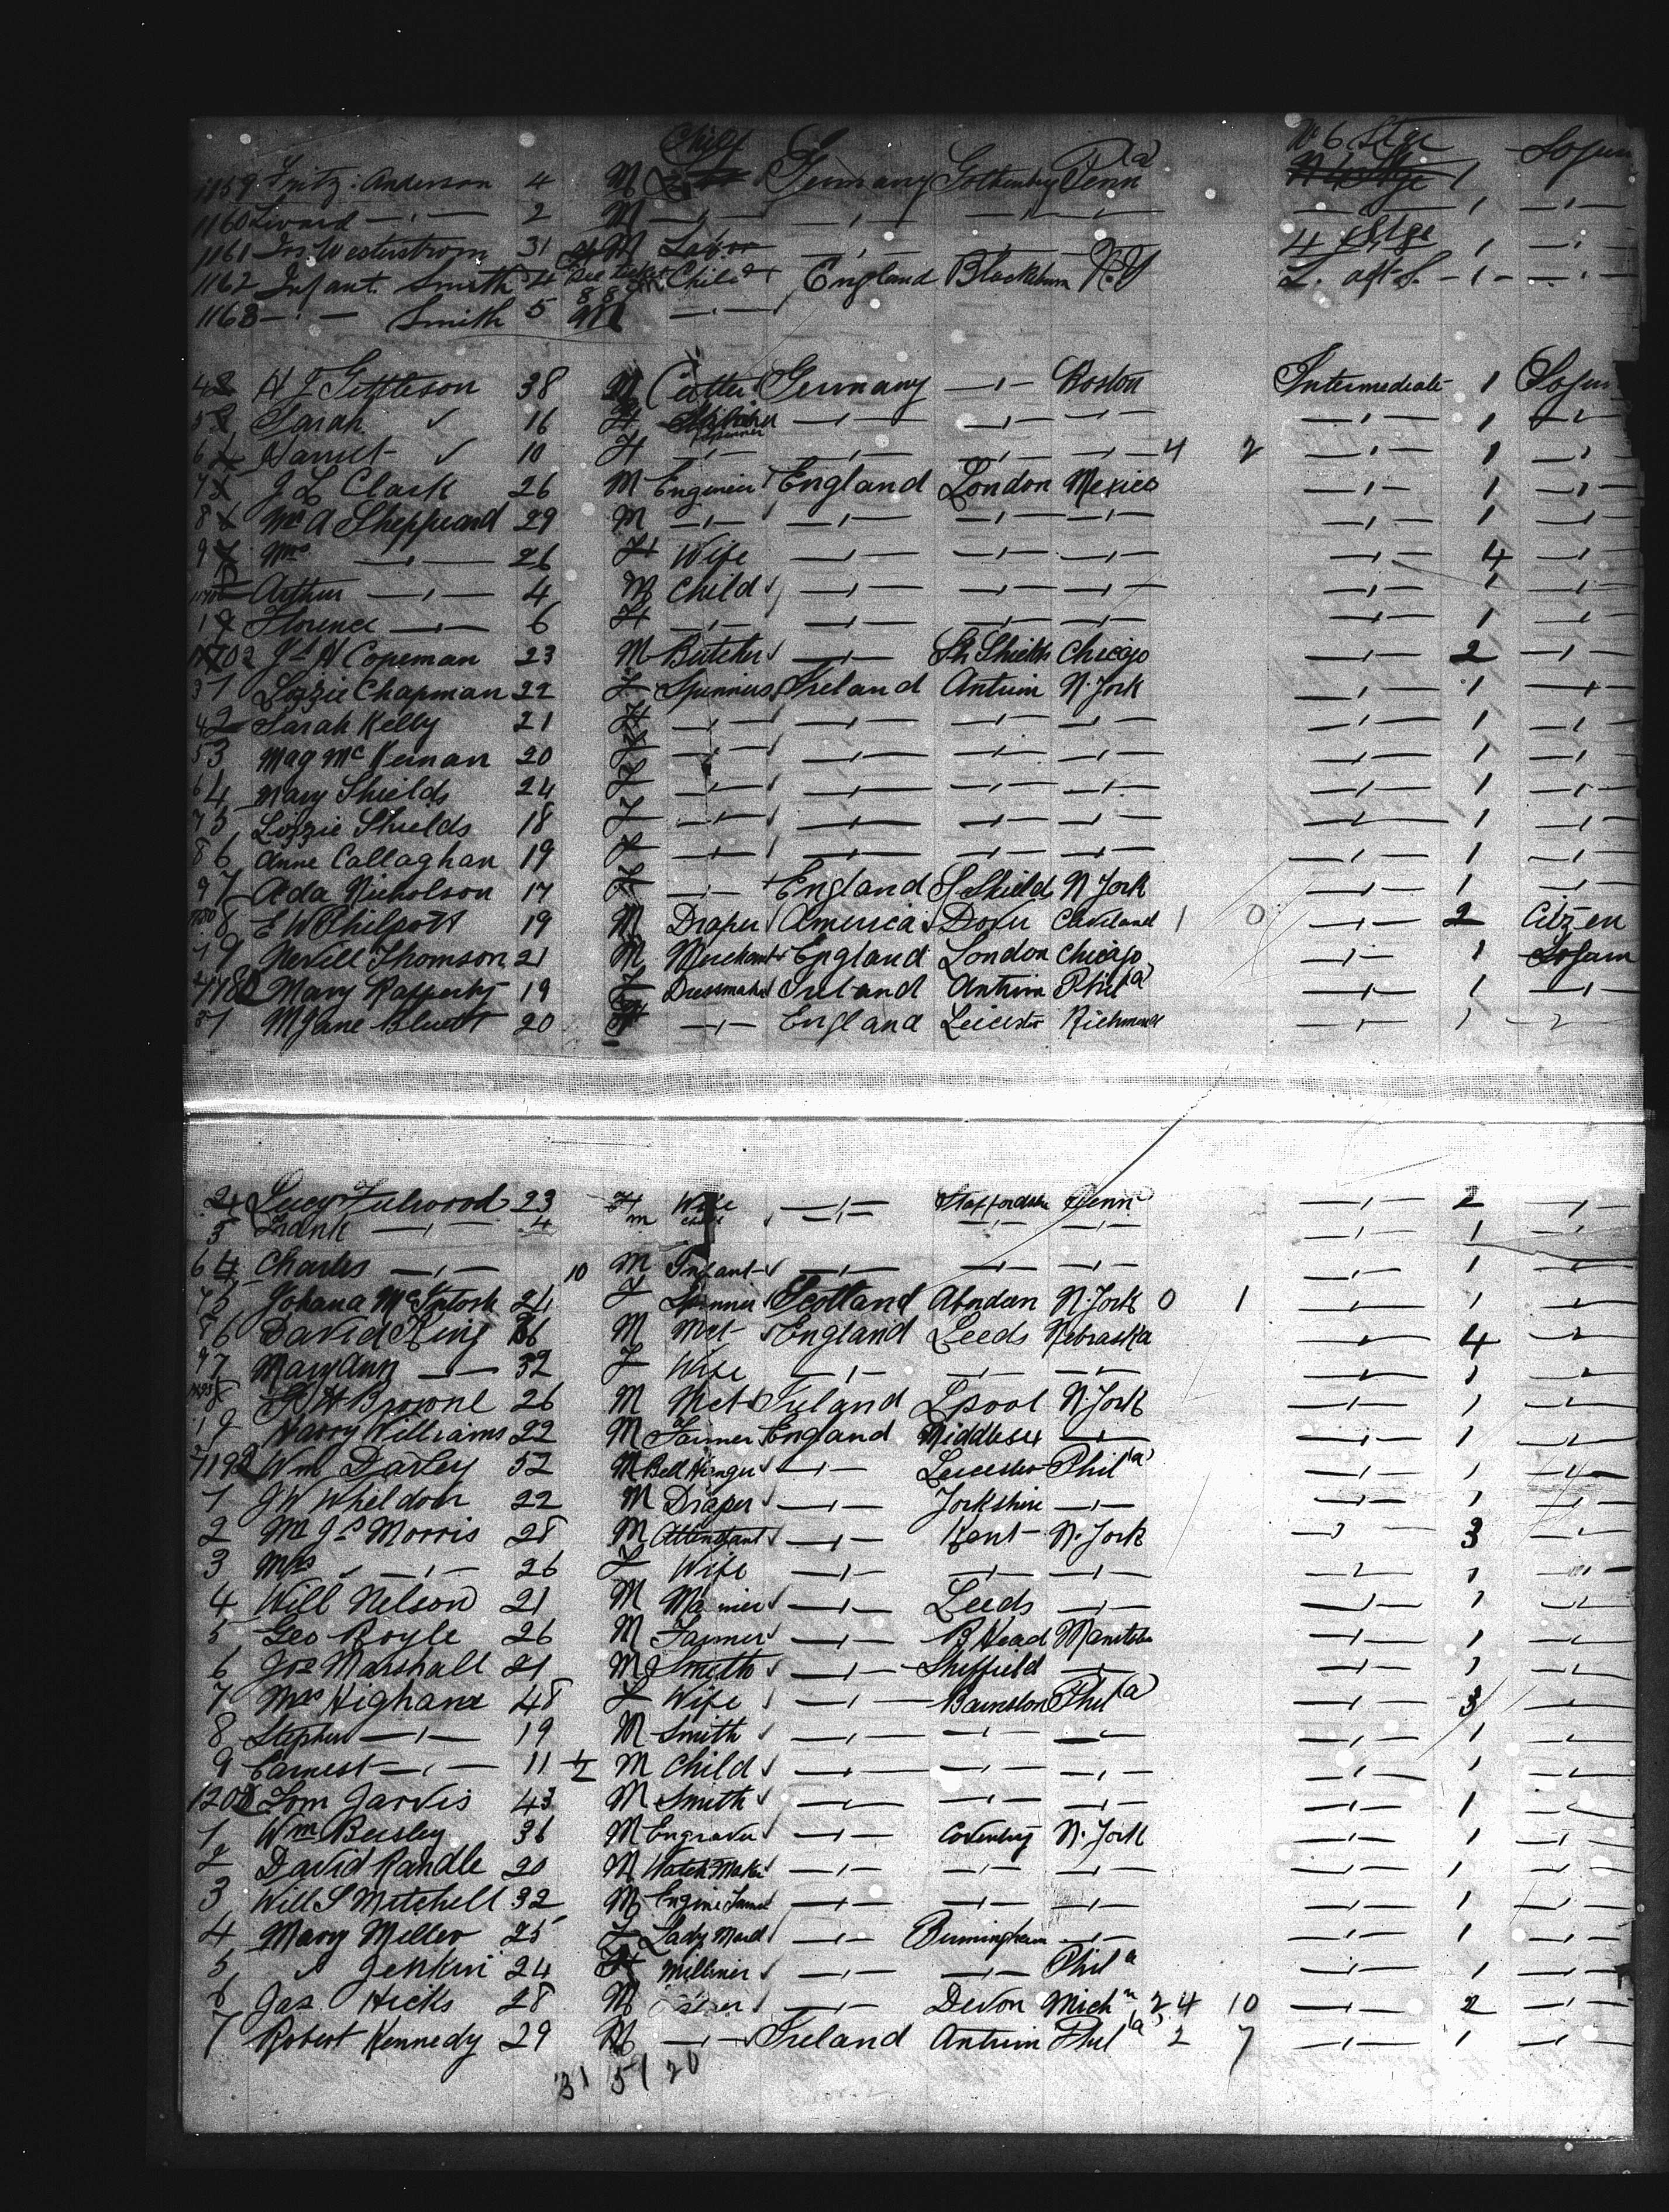 1159 Fritz Anderson 4 M Child Germany Gothenbg Penn(a) No 6 Stge 1 Sojurn
1160 Edward —"— 2 M —"— —"— —"— —"— —"— 1 —"—
1161 Jos Westerstrom 31 M Labor —"— —"— —"— 4 Stge 1 —"—
1162 Infant Smith 4 See ticket 889 Child England Blackburn N.Y L. aft S. — 1 — —"—
1163 —"— Smith 5 M —"—
4 H J Gittleson 38 M Cutter Germany —"— Boston Intermediate 1 Sojurn
5 Sarah ✓ 16 F Spinner —"— —"— —"— —"— 1 —"—
6 Harriet ✓ 10 F —"— —"— —"— —"— 4 2 —"— 1 —"—
7 J L Clark 26 M Engineer England London Mexico —"— 1 —"—
8 Mr A Sheppeard 29 M —"— —"— —"— —"— —"— 1 —"—
9 Mrs —"— 26 F Wife —"— —"— —"— —"— 4 —"—
Arthur —"— 4 M Child —"— —"— —"— —"— 1 —"—
1 Florence —"— 6 F —"— —"— —"— —"— —"— 1 —"—
2 Js H Copeman 23 M Butcher —"— Sh Shields Chicago —"— 2 —"—
3 1 Lizzie Chapman 22 F Spinners Ireland Antrim N. York —"— 1 —"—
4 2 Sarah Kelly 21 F —"— —"— —"— —"— —"— 1 —"—
5 3 Mag McKernan 20 F —"— —"— —"— —"— —"— 1 —"—
6 4 Mary Shields 24 F —"— —"— —"— —"— —"— 1 —"—
7 5 Lizzie Shields 18 F —"— —"— —"— —"— —"— 1 —"—
8 6 Anne Callaghan 19 F —"— —"— —"— —"— —"— 1 —"—
9 7 Ada Nicholson 17 F —"— England S Shields N York —"— 1 —"—
1180 8 E W Philpott 19 M Draper America Dover Cleveland 1 0 —"— 2 Citzen
1 9 Nevill Thomson 21 M Merchant England London Chicago —"— 1 Sojurn
Mary Rafferty 19 F Dressmaker Ireland Antrim Phil(a) —"— 1 —"—
1 M Jane Bluett 20 F —"— England Leicester Richmond —"— 1 —"—
Lucy Fulwood 23 F Wife —"— Staffordshire Penn(a) —"— 2 —"—
5 Frank —"— 4 M Child —"— —"— —"— —"— 1 —"—
6 4 Charles —"— 10 M Infant —"— —"— —"— —"— 1 —"—
7 5 Johana McIntosh 24 F Spinner Scotland Aberdeen N. York 0 1 —"— 1 —"—
8 6 David King 36 M Mct England Leeds Nebraska —"— 4 —"—
9 7 Mary Ann —"— 32 F Wife —"— —"— —"— —"— 1 —"—
8 H Browne 26 M Mct Ireland Lpool N. York —"— 1 —"—
1 9 Harry Williams 22 M Farmer England Middlesex —"— —"— 1 —"—
1192 Wm Darley 52 M Bell Hanger —"— Leicester Phil(a) —"— 1 —"—
1 J W Wheldon 22 M Draper —"— Yorkshire —"— —"— 1 —"—
2 Mr Js Morris 28 M Attendant —"— Kent N. York —"— 3 —"—
3 Mrs —"— 26 F Wife —"— —"— —"— —"— 1 —"—
4 Will Nelson 21 M Mariner —"— Leeds —"— —"— 1 —"—
5 Geo Royle 26 M Farmer —"— B Head Manitoba —"— 1 —"—
6 Jos Marshall 21 M Smith —"— Sheffield —"— —"— 1 —"—
7 Mrs Highane 48 F Wife —"— Phil(a) —"— 3 —"—
8 Stephen —"— 19 M Smith —"— —"— —"— —"— 1 —"—
9 Earnest —"— 11 ½ M Child —"— —"— —"— —"— 1 —"—
1200 Tom Jarvis 43 M Smith —"— —"— —"— —"— 1 —"—
1 Wm Beesley 36 M Engraver —"— Coventry N. York —"— 1 —"—
2 David Randle 20 M Watch Maker —"— —"— —"— —"— 1 —"—
3 Will S Mitchell 32 M —"— —"— —"— —"— 1 —"—
4 Mary Miller 25 F Lady Maid —"— Birmingham —"— —"— 1 —"—
5 " Jenkin 24 F Milliner —"— —"— Phila —"— 1 —"—
6 Jas Hicks 28 M —"— Devon Michn 24 10 —"— 2 —"—
7 Robert Kennedy 29 M —"— Ireland Antrim Phil(a) 2 7 —"— 1 —"—
31 51 20